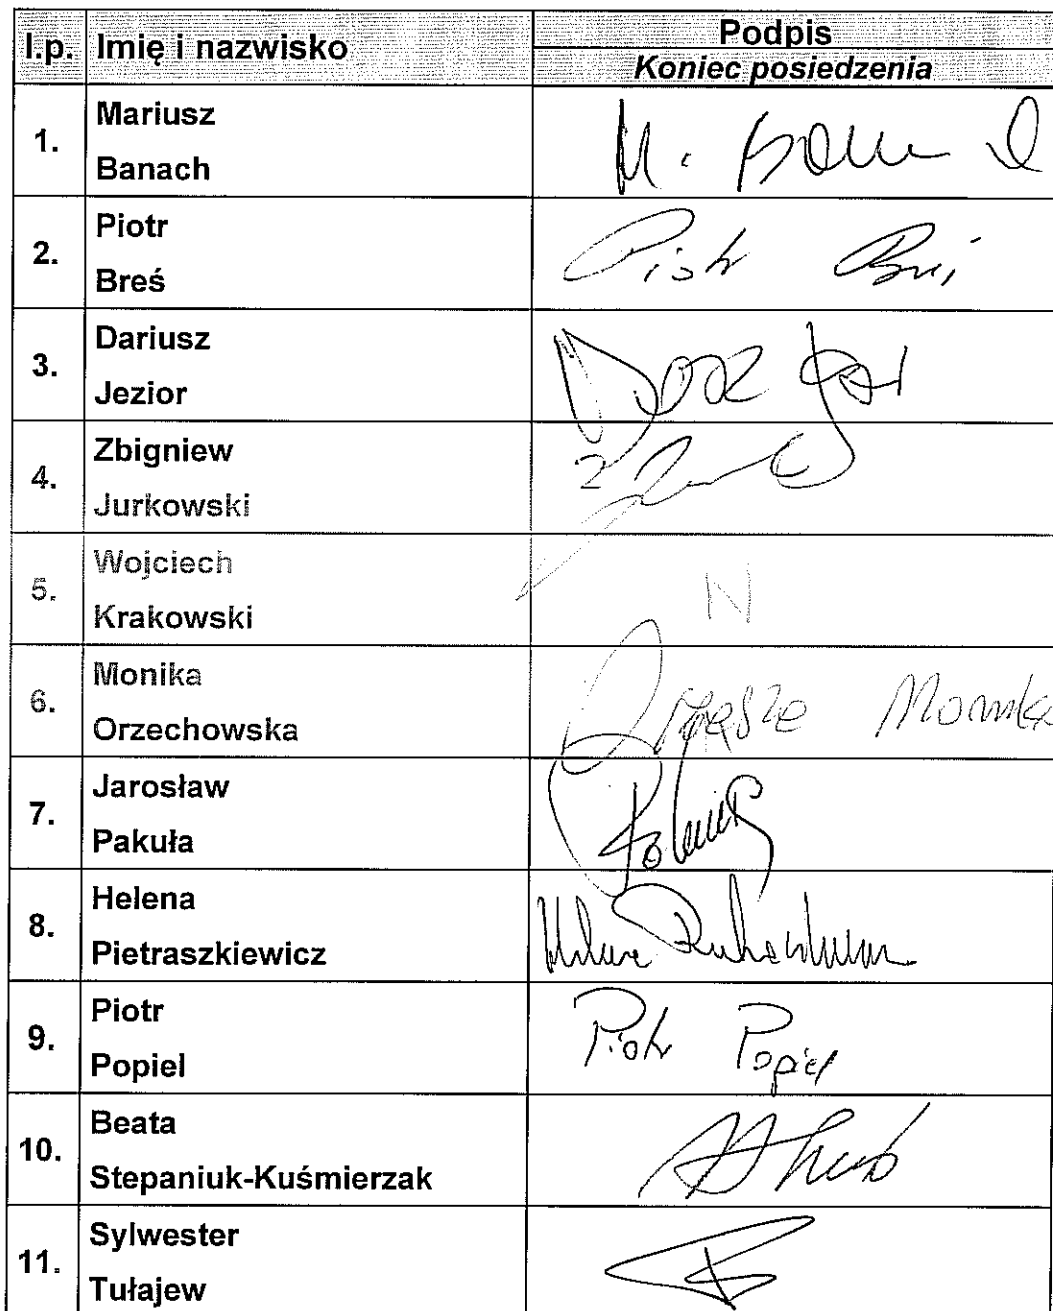 l.p. Imię i nazwisko Podpis
Koniec posiedzenia
1. Mariusz
Banach
M. Bana
2. Piotr
Breś
Piotr Breś
3. Dariusz
Jezior
4. Zbigniew
Jurkowski
5. Wojciech
Krakowski
N
6. Monika
Orzechowska
Monika
7. Jarosław
Pakuła
8. Helena
Pietraszkiewicz
9. Piotr
Popiel
Piotr Popiel
10. Beata
Stepaniuk-Kuśmierzak
11. Sylwester
Tułajew